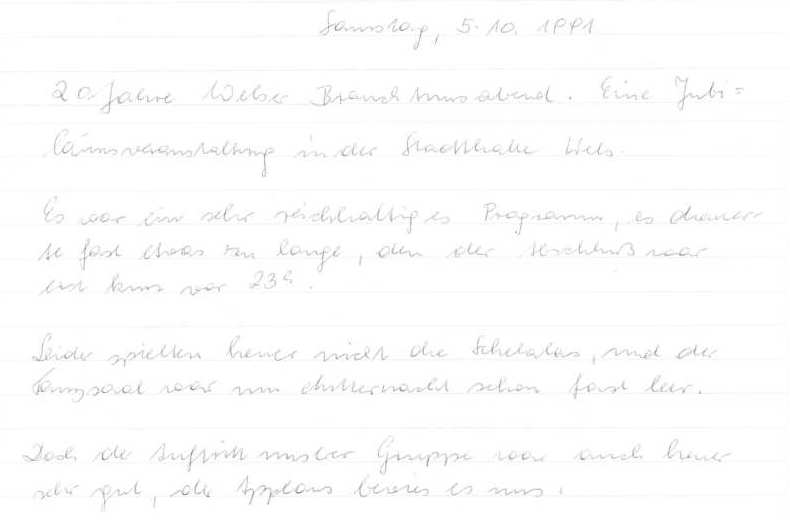 Samstag, 5.10.1991
20 Jahre Welser Brauchtumsabend. Eine Jubi=
läumsveranstaltung in der Stadthalle Wels.
Es war ein sehr reichhaltiges Programm, es dauer
te fast etwas zu lange, den der Abschluß war
erst kurz vor 23h.
Leider spielten heuer nicht die Schelalas, und der
Tanzsaal war um Mitternacht schon fast leer.
Doch der Auftritt unster Gruppe war auch heuer
sehr gut, der Applaus bewies es uns.